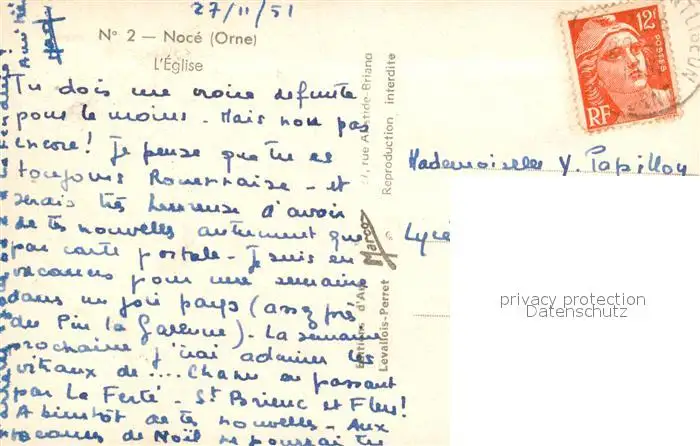 27/11/51
N° 2 — Nocé (Orne)
L'Église
Tu dois me croire défunte
pour le moins. Mais non pas
encore! Je pense que tu es
toujours Rouennaise - et
serais très heureuse d'avoir
de tes nouvelles autrement que
par carte postale. Je suis en
vacances pour une semaine
dans un joli pays (assez près
du Pin la Garenne). La semaine
prochaine j'irai admirer les
vitraux de .... Chane en passant
par La Ferté - St Brieuc et Flers!
A bientôt de tes nouvelles - Aux
vacances de Noël ne pourrai tu
Amitiés
rue Aristide-Briand
Reproduction interdite
Editions d'Art
Marco
Levallois-Perret
12F
POSTES
RF
Mademoiselle Y. Papillon
Lycé
privacy protection
Datenschutz